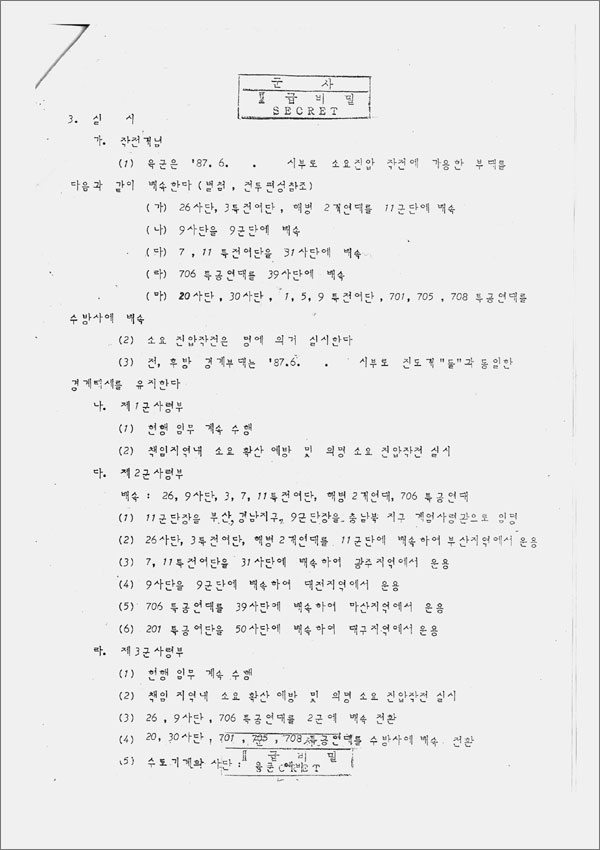 군 사
Ⅱ 급 비 밀
SECRET
3. 실 시
가. 작전개념
(1) 육군은 '87.6. . 시부로 소요진압 작전에 가용한 부대를
다음과 같이 배속한다 (별첨, 전투편성참조)
(가) 26사단, 3특전여단, 해병 2개연대를 11군단에 배속
(나) 9사단을 9군단에 배속
(다) 7, 11 특전여단을 31사단에 배속
(라) 706 특공연대를 39사단에 배속
(마) 20사단, 30사단, 1, 5, 9 특전여단, 701, 705, 708 특공연대를
수방사에 배속
(2) 소요 진압작전은 명에 의거 실시한다
(3) 전, 후방 경계부대는 '87.6. . 시부로 진도개 "둘"과 동일한
경계태세를 유지한다
나. 제1군사령부
(1) 현행 임무 계속 수행
(2) 책임지역내 소요 확산 예방 및 의명 소요 진압작전 실시
다. 제2군사령부
배속 : 26, 9사단, 3, 7, 11특전여단, 해병 2개연대, 706 특공연대
(1) 11군단장을 부산, 경남지구, 9군단장을 충남북 지구 계엄사령관으로 임명
(2) 26사단, 3특전여단, 해병 2개연대를 11군단에 배속하여 부산지역에서 운용
(3) 7, 11특전여단을 31사단에 배속하여 광주지역에서 운용
(4) 9사단을 9군단에 배속하여 대전지역에서 운용
(5) 706 특공연대를 39사단에 배속하여 마산지역에서 운용
(6) 201 특공여단을 50사단에 배속하여 대구지역에서 운용
라. 제3군사령부
(1) 현행 임무 계속 수행
(2) 책임 지역내 소요 확산 예방 및 의명 소요 진압작전 실시
(3) 26, 9사단, 706 특공연대를 2군에 배속 전환
(4) 20, 30사단, 701, 705, 708 특공연대를 수방사에 배속 전환
(5) 수도기계화 사단 : 육군 예비
Ⅱ 급 비 밀